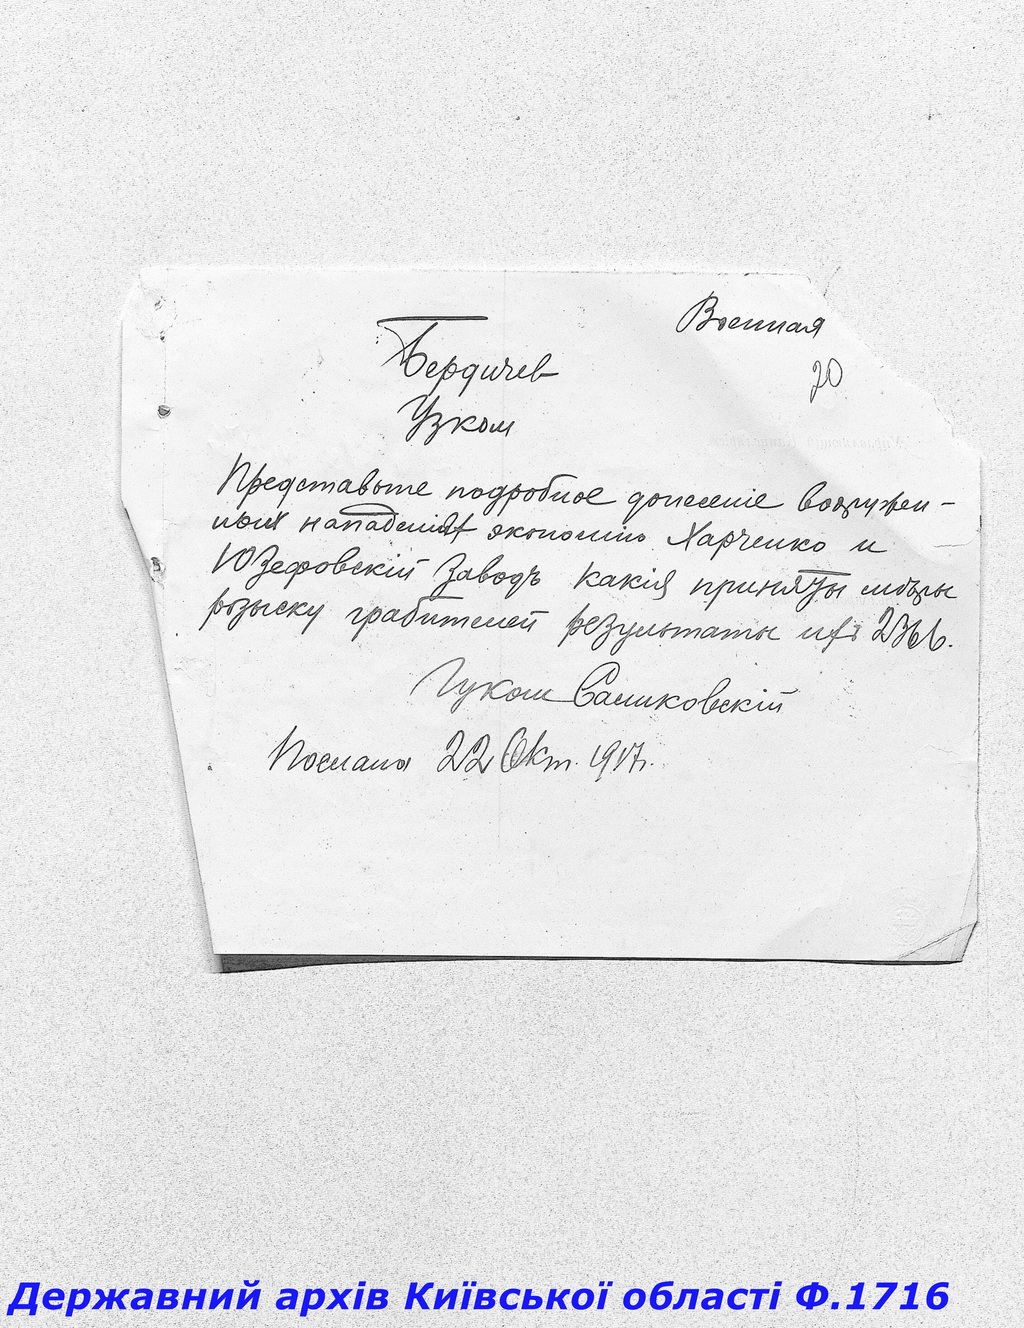 Военная
20
Бердичев
Узком
Представьте подробное донесеніе вооружен-
ных нападеніях экономію Харченко и
Юзефовскій Заводъ какія приняты мѣры
розыску грабителей результаты
Гуком Саликовскій
Послана 22 Окт. 1917.
Державний архів Київської області Ф.1716